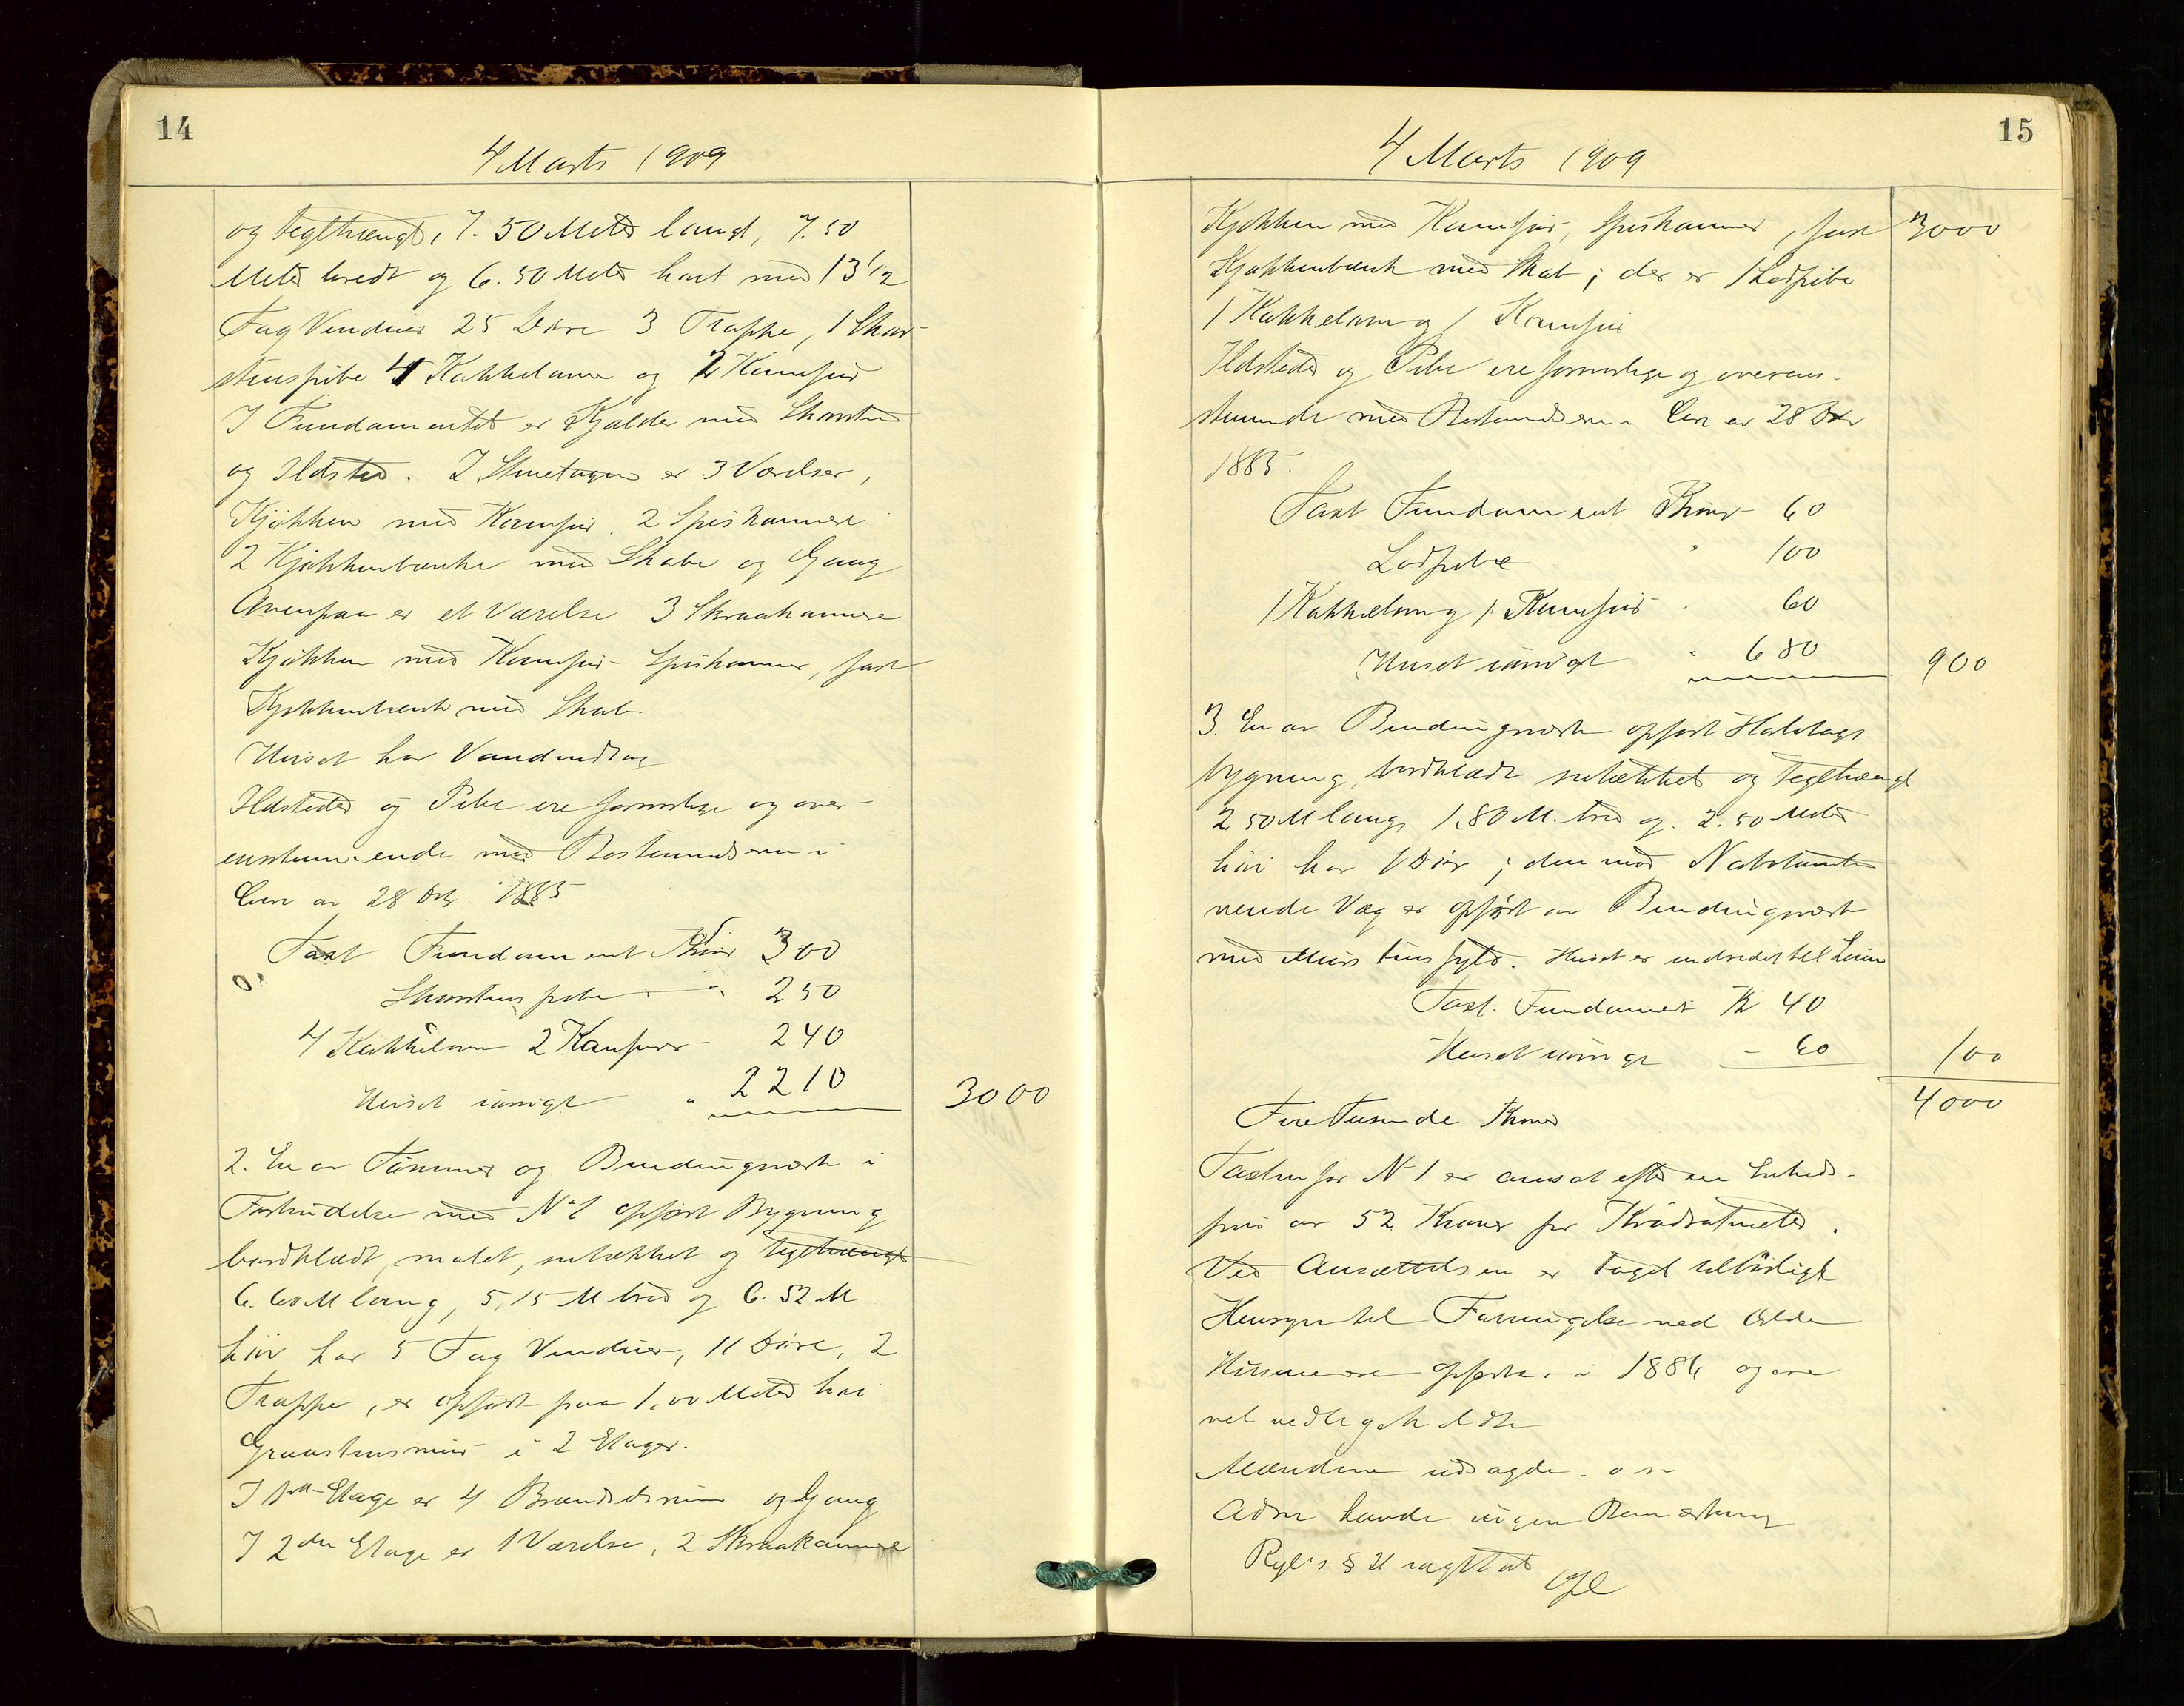 14
4 Marts 1909
og teglhængt, 7.50 Meter langt, 7.50
Meter bredt og 6.50 Meter høit med 13 1/2
Fag Vinduer 25 Døre 3 Trappe, 1 Skor-
stenspibe 4 Kakkelovne og 2 Komfur
I Fundamentet er Kjælder med Skorsten
og Ildsted. I Stueetagen er 3 Værelser,
Kjøkken med Komfur, 2 Spiskammere
2 Kjøkkenbænke med Skabe og Gang
Ovenpaa er et Værelse 3 Skraakammere
Kjøkken med Komfur Spiskammer, fast
Kjøkkenbænk med Skab.
Huset har Vandindlæg
Ildsteder og Pibe ere forsvarlige og over-
enstemmende med Bestemmelserne i
Loven av 28 Oct 1885
Taxt Fundament Kroner 300
Skorstenspibe " 250
4 Kakkelovne 2 Komfurer - 240
Huset iøvrigt " 2210
3000
2. En av Tømmer og Bindingsverk i
Forbindelse med No 1 opført Bygning
bordklædt, malet, sutækket og teglhængt
6.60 M lang, 5,15 M bred og 6.52 M
høi har 5 Fag Vinduer, 11 Døre, 2
Trappe, er opført paa 1.00 Meter høi
Graastensmur i 2 Etager.
I 1ste Etage er 4 Brændselsrum og Gang
I 2den Etage er 1 Værelse, 2 Skraakammere
15
4 Marts 1909
Kjøkken med Komfur, Spiskammer, fast 3000
Kjøkkenbænk med Skab; der er 1 Lodpibe
1 Kakkelovn og 1 Komfur
Ildsteder og Pibe ere forsvarlige og overens-
stemmende med Bestemmelserne i Loven av 28 Oct
1885.
Taxt Fundament Kroner 60
Lodpibe " 100
1 Kakkelovn og 1 Komfur " 60
Huset iøvrigt " 680
900
3. En av Bindingsverk opført Halvtags
bygning, bordklædt sutækket og teglhængt
2.50 M lang, 1.80 M. bred og 2.50 Meter
høi har 1 Dør; den mod Nabotomten
vende Væg er opført av Bindingsverk
med Murstensfyld. Huset er indredet til
Taxt. Fundament Kr 40
Huset iøvrigt - 60
100
4000
Fire Tusinde Kroner
Taxten for No 1 er ansat efter en Enheds-
pris av 52 Kroner per Kvadratmeter.
Ved Ansættelsen er taget tilbørligt
Hensyn til Forringelse ved Ælde
Husene ere opførte i 1886 og ere
vel vedligeholdte
Mændene udsagde o s
havde ingen Bemærkning
§ 21 iagttat